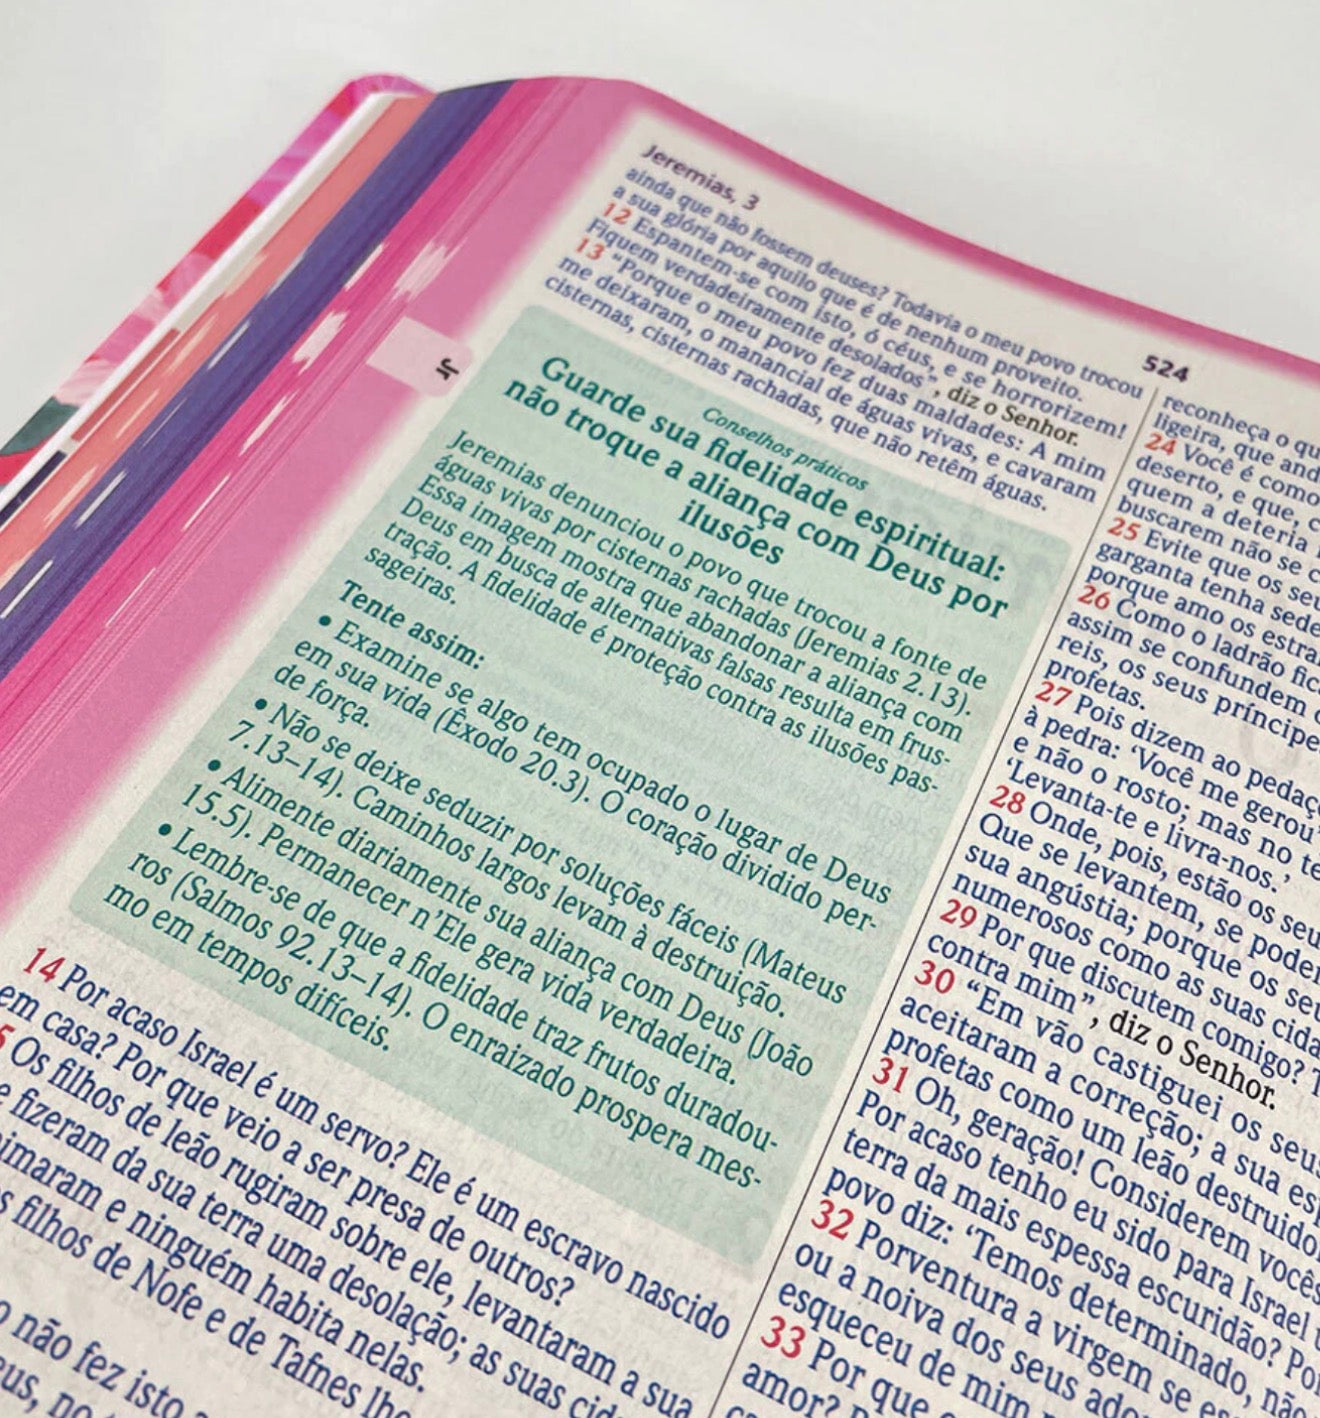 Jeremias, 3
524
ainda que não fossem deuses? Todavia o meu povo trocou
a sua glória por aquilo que é de nenhum proveito.
12 Espantem-se com isto, ó céus, e se horrorizem!
Fiquem verdadeiramente desolados”, diz o Senhor.
13 “Porque o meu povo fez duas maldades: A mim
me deixaram, o manancial de águas vivas, e cavaram
cisternas, cisternas rachadas, que não retêm águas.
Jr
Conselhos práticos
Guarde sua fidelidade espiritual:
não troque a aliança com Deus por
ilusões
Jeremias denunciou o povo que trocou a fonte de
águas vivas por cisternas rachadas (Jeremias 2.13).
Essa imagem mostra que abandonar a aliança com
Deus em busca de alternativas falsas resulta em frus-
tração. A fidelidade é proteção contra as ilusões pas-
sageiras.
Tente assim:
• Examine se algo tem ocupado o lugar de Deus
em sua vida (Êxodo 20.3). O coração dividido per-
de força.
• Não se deixe seduzir por soluções fáceis (Mateus
7.13–14). Caminhos largos levam à destruição.
• Alimente diariamente sua aliança com Deus (João
15.5). Permanecer n’Ele gera vida verdadeira.
• Lembre-se de que a fidelidade traz frutos duradou-
ros (Salmos 92.13–14). O enraizado prospera mes-
mo em tempos difíceis.
14 Por acaso Israel é um servo? Ele é um escravo nascido
em casa? Por que veio a ser presa de outros?
Os filhos de leão rugiram sobre ele, levantaram a sua
e fizeram da sua terra uma desolação; as suas
e ninguém habita nelas.
filhos de Nofe e de Tafnes
não fez isto
reconheça o
ligeira, que
24 Você é como
deserto, e que,
quem a deteria
buscarem não se
25 Evite que os
garganta tenha sede
porque amo os
26 Como o ladrão
assim se confundem
reis, os seus
profetas.
27 Pois dizem ao
à pedra: ‘Você me gerou’
e não o rosto; mas no
‘Levanta-te e livra-nos.’
28 Onde, pois, estão os
Que se levantem, se
sua angústia; porque os
numerosos como as suas
29 Por que discutem comigo?
contra mim”, diz o Senhor.
30 “Em vão castiguei os
aceitaram a correção; a sua
profetas como um leão
31 Oh, geração! Considerem
Por acaso tenho eu sido para Israel
terra da mais espessa escuridão?
povo diz: ‘Temos determinado,
32 Porventura a virgem se
ou a noiva dos seus
esqueceu de mim
33 Por que
amor?